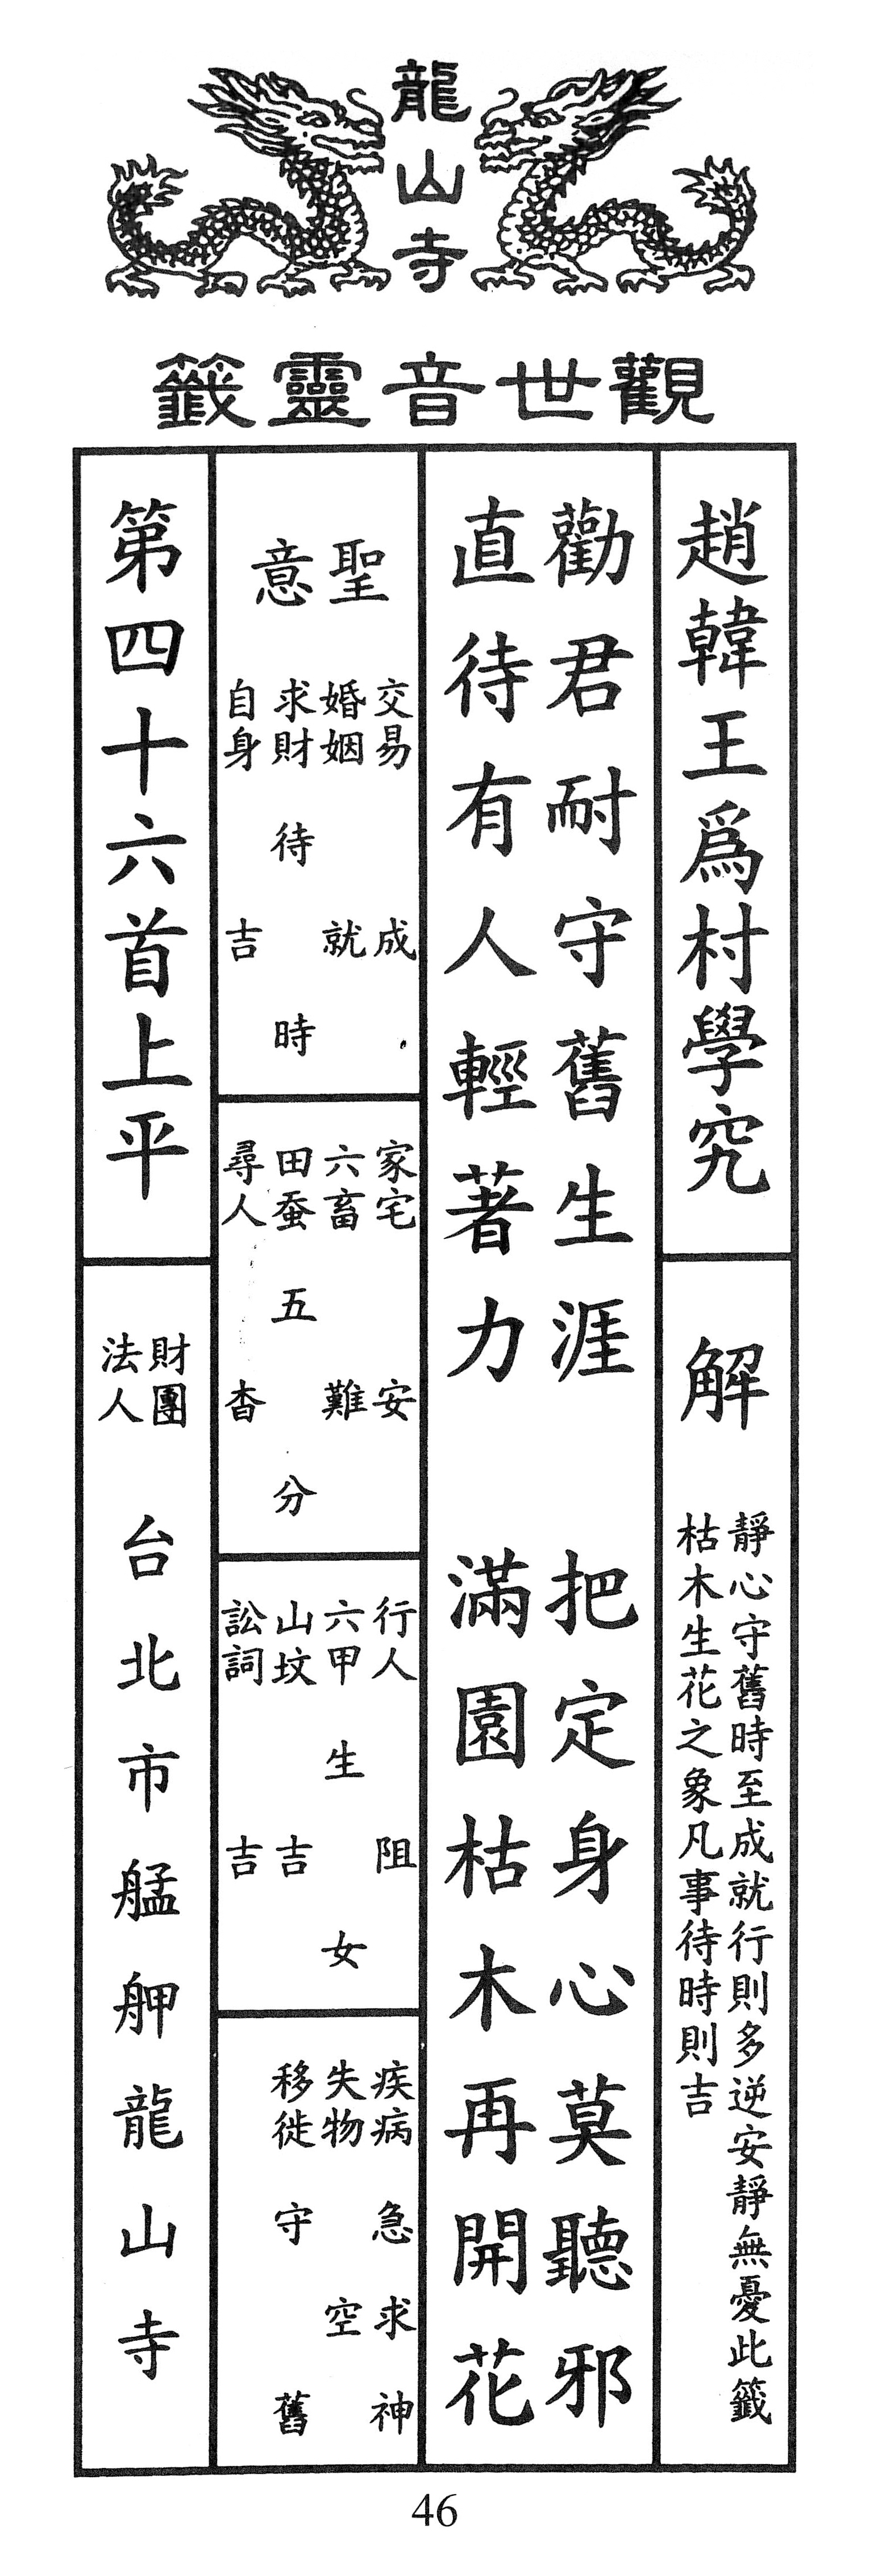 龍山寺
觀世音靈籤
趙韓王爲村學究
解
靜心守舊時至成就行則多逆安靜無憂此籤
枯木生花之象凡事待時則吉
勸君耐守舊生涯 把定身心莫聽邪
直待有人輕著力 滿園枯木再開花
聖意
交易 成
婚姻 就
求財 待時
自身 吉
家宅 安
六畜 難
田蚕 五分
尋人 杳
行人 阻
六甲 生女
山坟 吉
訟詞 吉
疾病 急求神
失物 空
移徙 守舊
第四十六首上平
財團法人
台北市艋舺龍山寺
46